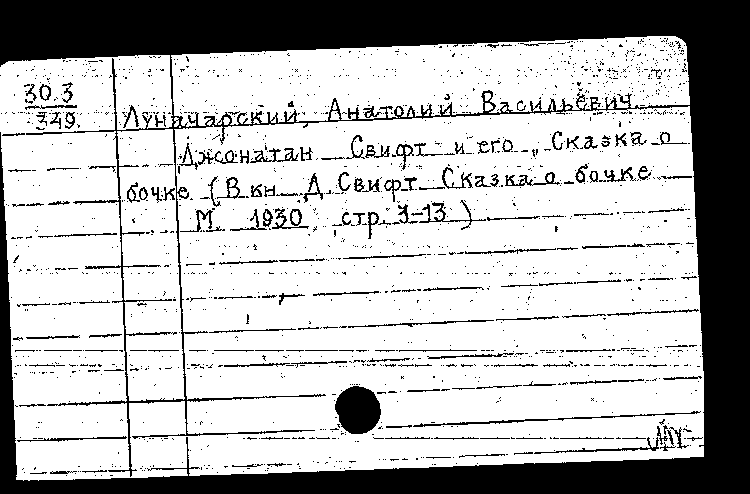 30.3
349.
Луначарский, Анатолий Васильевич
Джонатан Свифт и его „Сказка о
бочке (В кн. Д. Свифт Сказка о бочке
М. 1930, стр. 3-13)